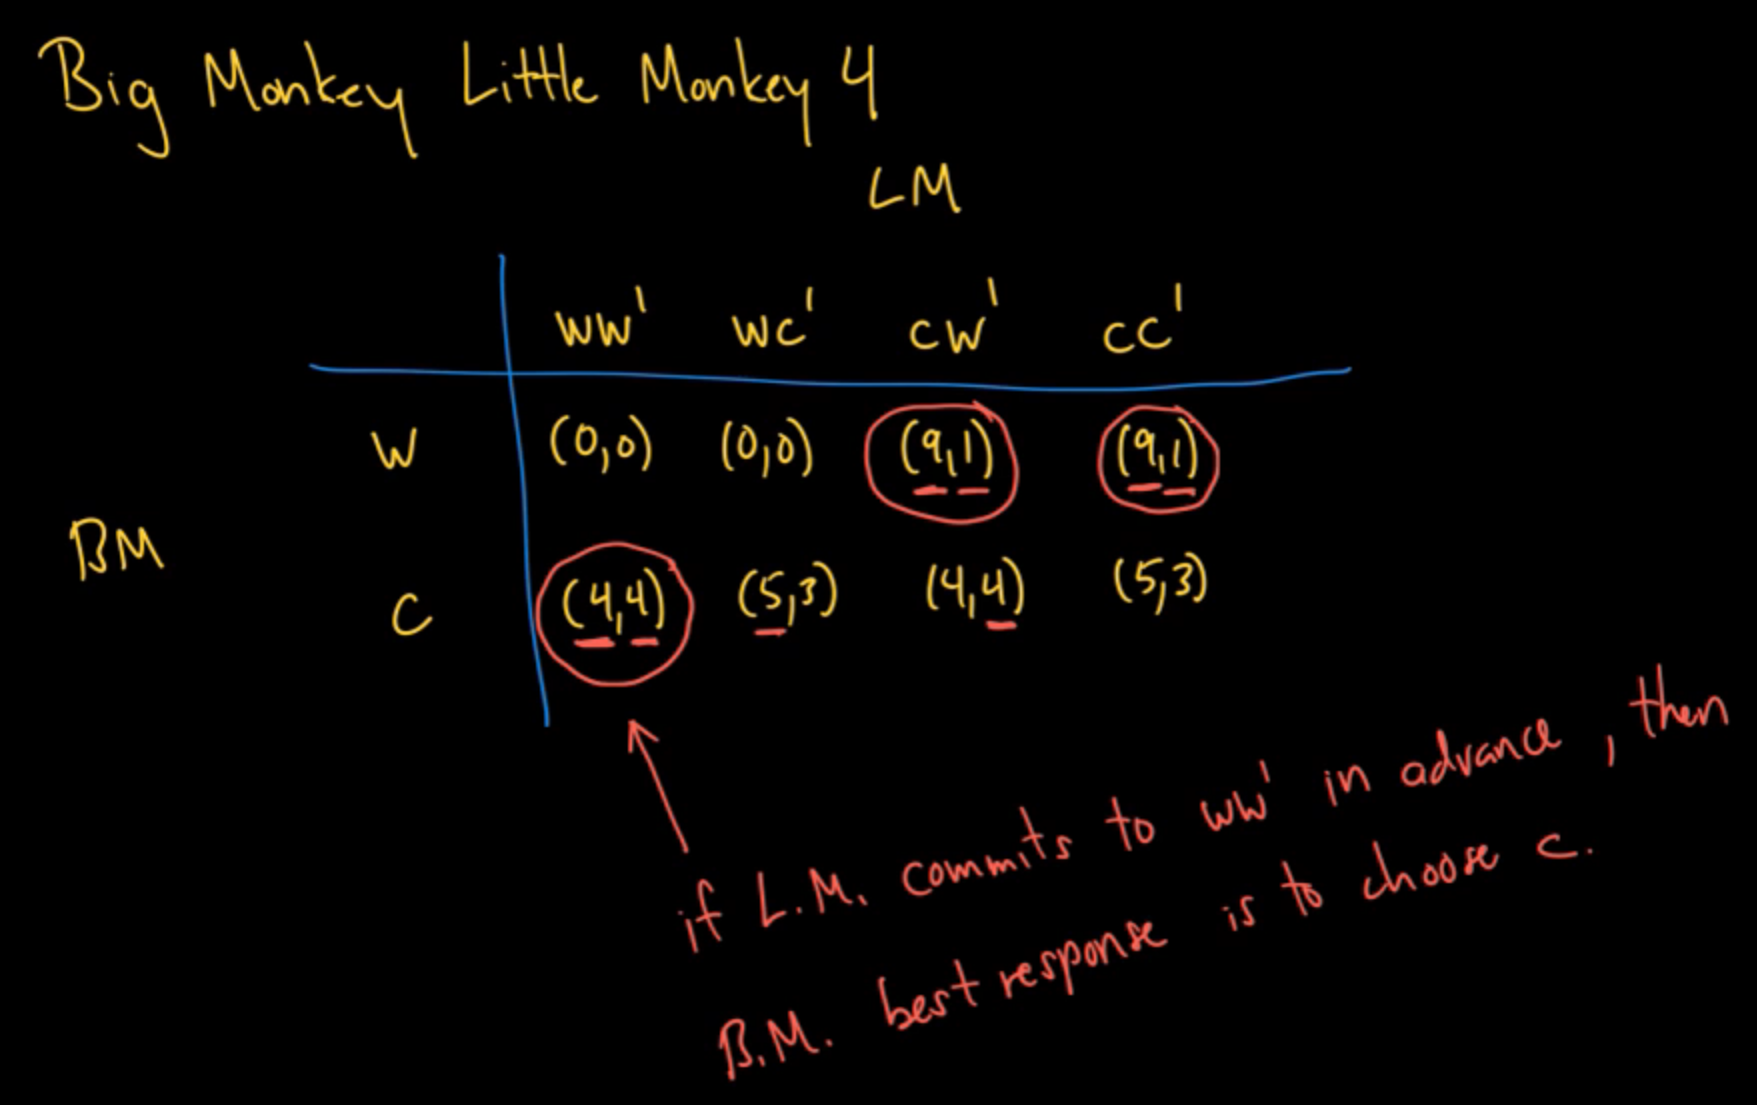 Big Monkey Little Monkey 4
LM
ww' wc' cw' cc'
W (0,0) (0,0) (9,1) (9,1)
BM
C (4,4) (5,3) (4,4) (5,3)
if L.M. commits to ww' in advance, then
B.M. best response is to choose c.